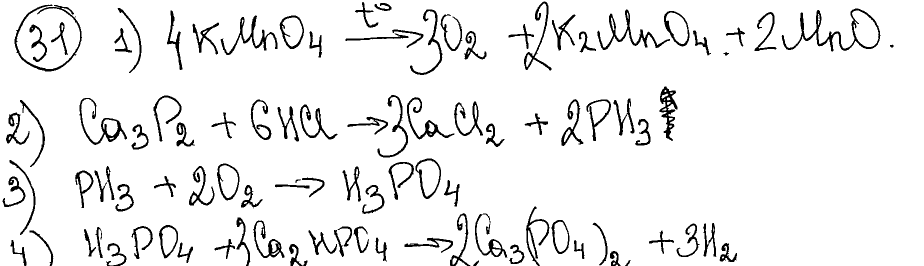 31 1) 4KMnO4 t° → 3O2 + 2K2MnO4 + 2MnO.
2) Ca3P2 + 6HCl → 3CaCl2 + 2PH3
3) PH3 + 2O2 → H3PO4
4) H3PO4 + 3Ca2HPO4 → 2Ca3(PO4)2 + 3H2